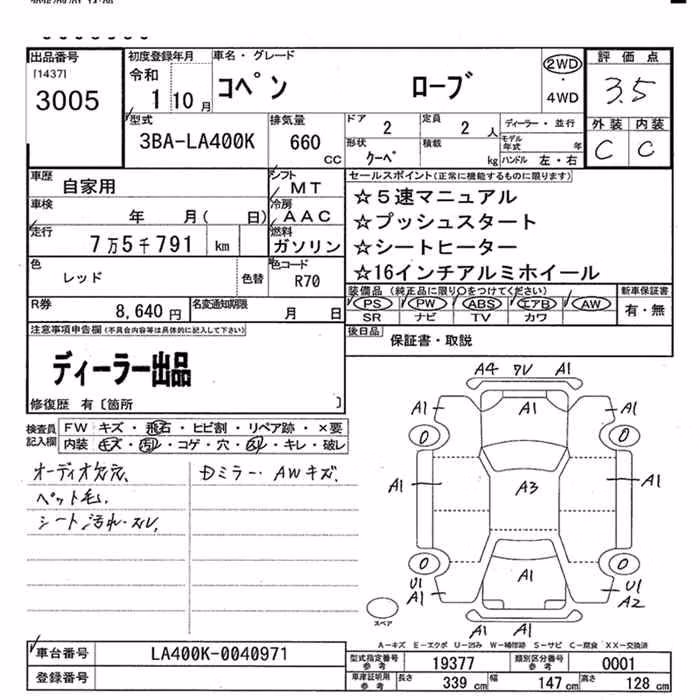 出品番号
[1437]
3005
初度登録年月
令和
1 10 月
車名・グレード
コペン ローブ
2WD
・
4WD
評価点
3.5
外装 内装
C C
型式
3BA-LA400K
排気量
660
CC
ドア
2
定員
2 人
形状
クーペ
積載
kg
ディーラー・並行
モデル年式 年
ハンドル 左・右
車歴
自家用
シフト
MT
車検
年 月( 日)
冷房
AAC
走行
7万5千791 km
燃料
ガソリン
色
レッド
色替
色コード
R70
R券
8,640 円
名変通知期限
月 日
セールスポイント(正常に機能するものに限ります)
☆5速マニュアル
☆プッシュスタート
☆シートヒーター
☆16インチアルミホイール
装備品 (純正品に限り○をつけてください)
PS PW ABS エアB AW
SR ナビ TV カワ
新車保証書
有・無
後日品
保証書・取説
注意事項申告欄(不具合内容等は具体的に記入して下さい)
ディーラー出品
修復歴 有〔箇所 〕
検査員
記入欄
FW キズ・飛石・ヒビ割・リペア跡・×要
内装 キズ・汚レ・コゲ・穴・スレ・キレ・破レ
オーディオ欠品、
ペット毛、
シート汚れ・スレ、
Dミラー・AWキズ、
A4 ワレ A1
A1 A1 A1
0 0
A1 A3 A1
0 0
U1 A1 U1
A1 A2
A1
スペア
A-キズ E-エクボ U-凹み W-補修跡 S-サビ C-腐食 XX-交換済
車台番号
LA400K-0040971
登録番号
型式指定番号
参考
19377
類別区分番号
参考
0001
車庫証明用
参考
長さ 339 cm 幅 147 cm 高さ 128 cm